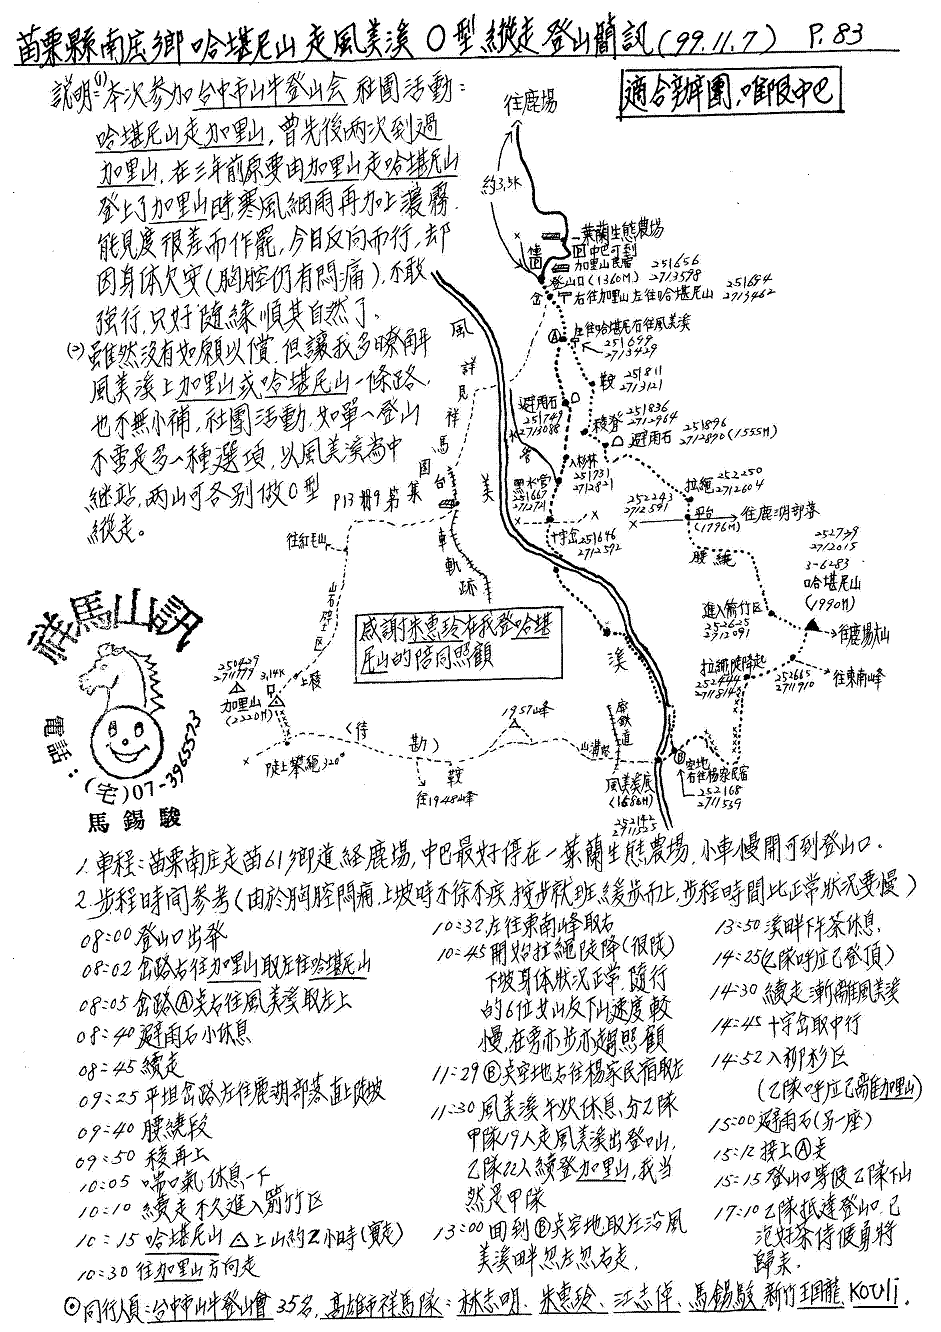 苗栗縣南庄鄉哈堪尼山走風美溪O型縱走登山簡訊(99.11.7) P.83
適合辦團,唯限中巴
說明:(1)本次參加台中市山牛登山会社團活動:
哈堪尼山走加里山,曾先後兩次到過
加里山,在三年前原要由加里山走哈堪尼山
登上了加里山時,寒風細雨再加上濃霧.
能見度很差而作罷,今日反向而行,却
因身体欠安(胸腔仍有悶痛),不敢
強行,只好隨緣順其自然了.
(2)雖然沒有如願以償,但讓我多瞭解
風美溪上加里山或哈堪尼山一條路,
也不無小補,社團活動,如單一登山
不啻是多一種選項,以風美溪為中
継站,兩山可各別做O型
縱走。
往鹿場
約3.5K
一葉蘭生態農場
中巴可到
加里山民宿
251656
2713598
登山口(1360M)
右往加里山左往哈堪尼山
251654
2713462
左往哈堪尼右往風美溪
251699
2713429
鞍
251811
2713121
避雨石
251749
2713088
稜脊
251836
2712964
避雨石
251896
2712890(1555M)
入杉林
251731
2712821
黑水管
251667
2712721
十字岔
251646
2712592
拉繩
252250
2712604
252243
2712591
平台
(1796M)
往鹿湖部落
腰繞
252739
2712015
3-6283
哈堪尼山
(1990M)
進入箭竹区
252625
2712091
往鹿場大山
拉繩陡降起
252444
2711814
252665
2711910
往東南峰
空地
右往楊家民宿
252168
2711539
風美溪底
(1686M)
252142
2711525
風
美
溪
詳見祥馬台
P139第集
車軌跡
往紅毛山
山石壁区
250429
2711777
3.14K
加里山
(2220M)
上稜
陡上攀繩320°
(待勘)
鞍
往1948山峰
1957山峰
山溝
舊鐵道
感謝朱惠玲在我登哈堪
尼山的陪同照顧
祥馬山訊
電話:(宅)07-3965523
馬錫駿
1.車程:苗栗南庄走苗61鄉道経鹿場,中巴最好停在一葉蘭生態農場,小車慢開可到登山口.
2.步程時間參考(由於胸腔悶痛,上坡時不徐不疾,按步就班,緩步而上,步程時間比正常狀況要慢)
08:00登山口出發
08:02岔路右往加里山取左往哈堪尼山
08:05岔路Ⓐ点右往風美溪取左上
08:40避雨石小休息
08:45續走
09:25平坦岔路左往鹿湖部落直上陡坡
09:40腰繞段
09:50稜再上
10:05喘口氣休息一下
10:10續走不久進入箭竹区
10:15哈堪尼山△上山約2小時(實走)
10:30往加里山方向走
10:32左往東南峰取右
10:45開始拉繩陡降(很陡)
下坡身体狀況正常,隨行
的6位女山友下山速度較
慢,在旁亦步亦趨照顧
11:29Ⓑ点空地右往楊家民宿取左
11:30風美溪午炊休息,分乙隊
甲隊19人走風美溪出登山口,
乙隊22人續登加里山,我当
然是甲隊
13:00回到Ⓑ点空地取左沿風
美溪畔忽左忽右走.
13:50溪畔下午茶休息.
14:25(乙隊呼応已登頂)
14:30續走漸離風美溪
14:45十字岔取中行
14:52入柳杉区
(乙隊呼応已離加里山)
15:00避雨石(另一座)
15:12接上Ⓐ点
15:15登山口等侯乙隊下山
17:10乙隊抵達登山口.已
泡好茶侍侯身將
歸來.
⊙同行人員:台中市山牛登山會35名,高雄市祥馬隊:林志明、朱惠玲、江志偉、馬錫駿、新竹王国龍、Kouli.